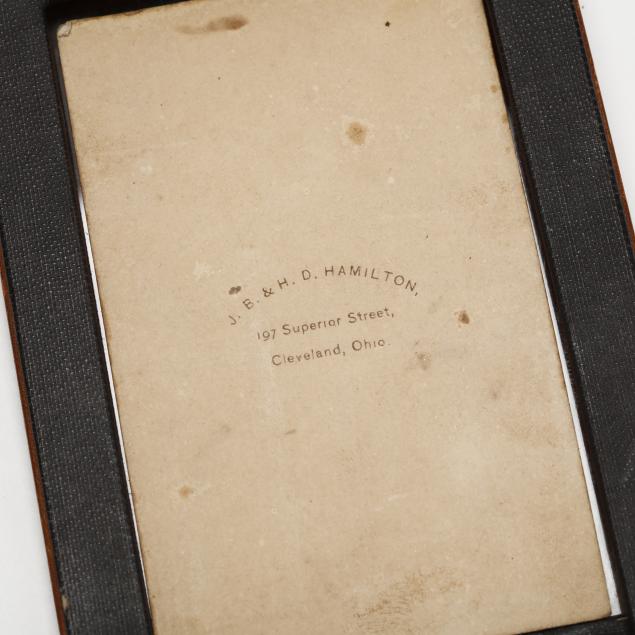 J. B. & H. D. HAMILTON,
197 Superior Street,
Cleveland, Ohio.